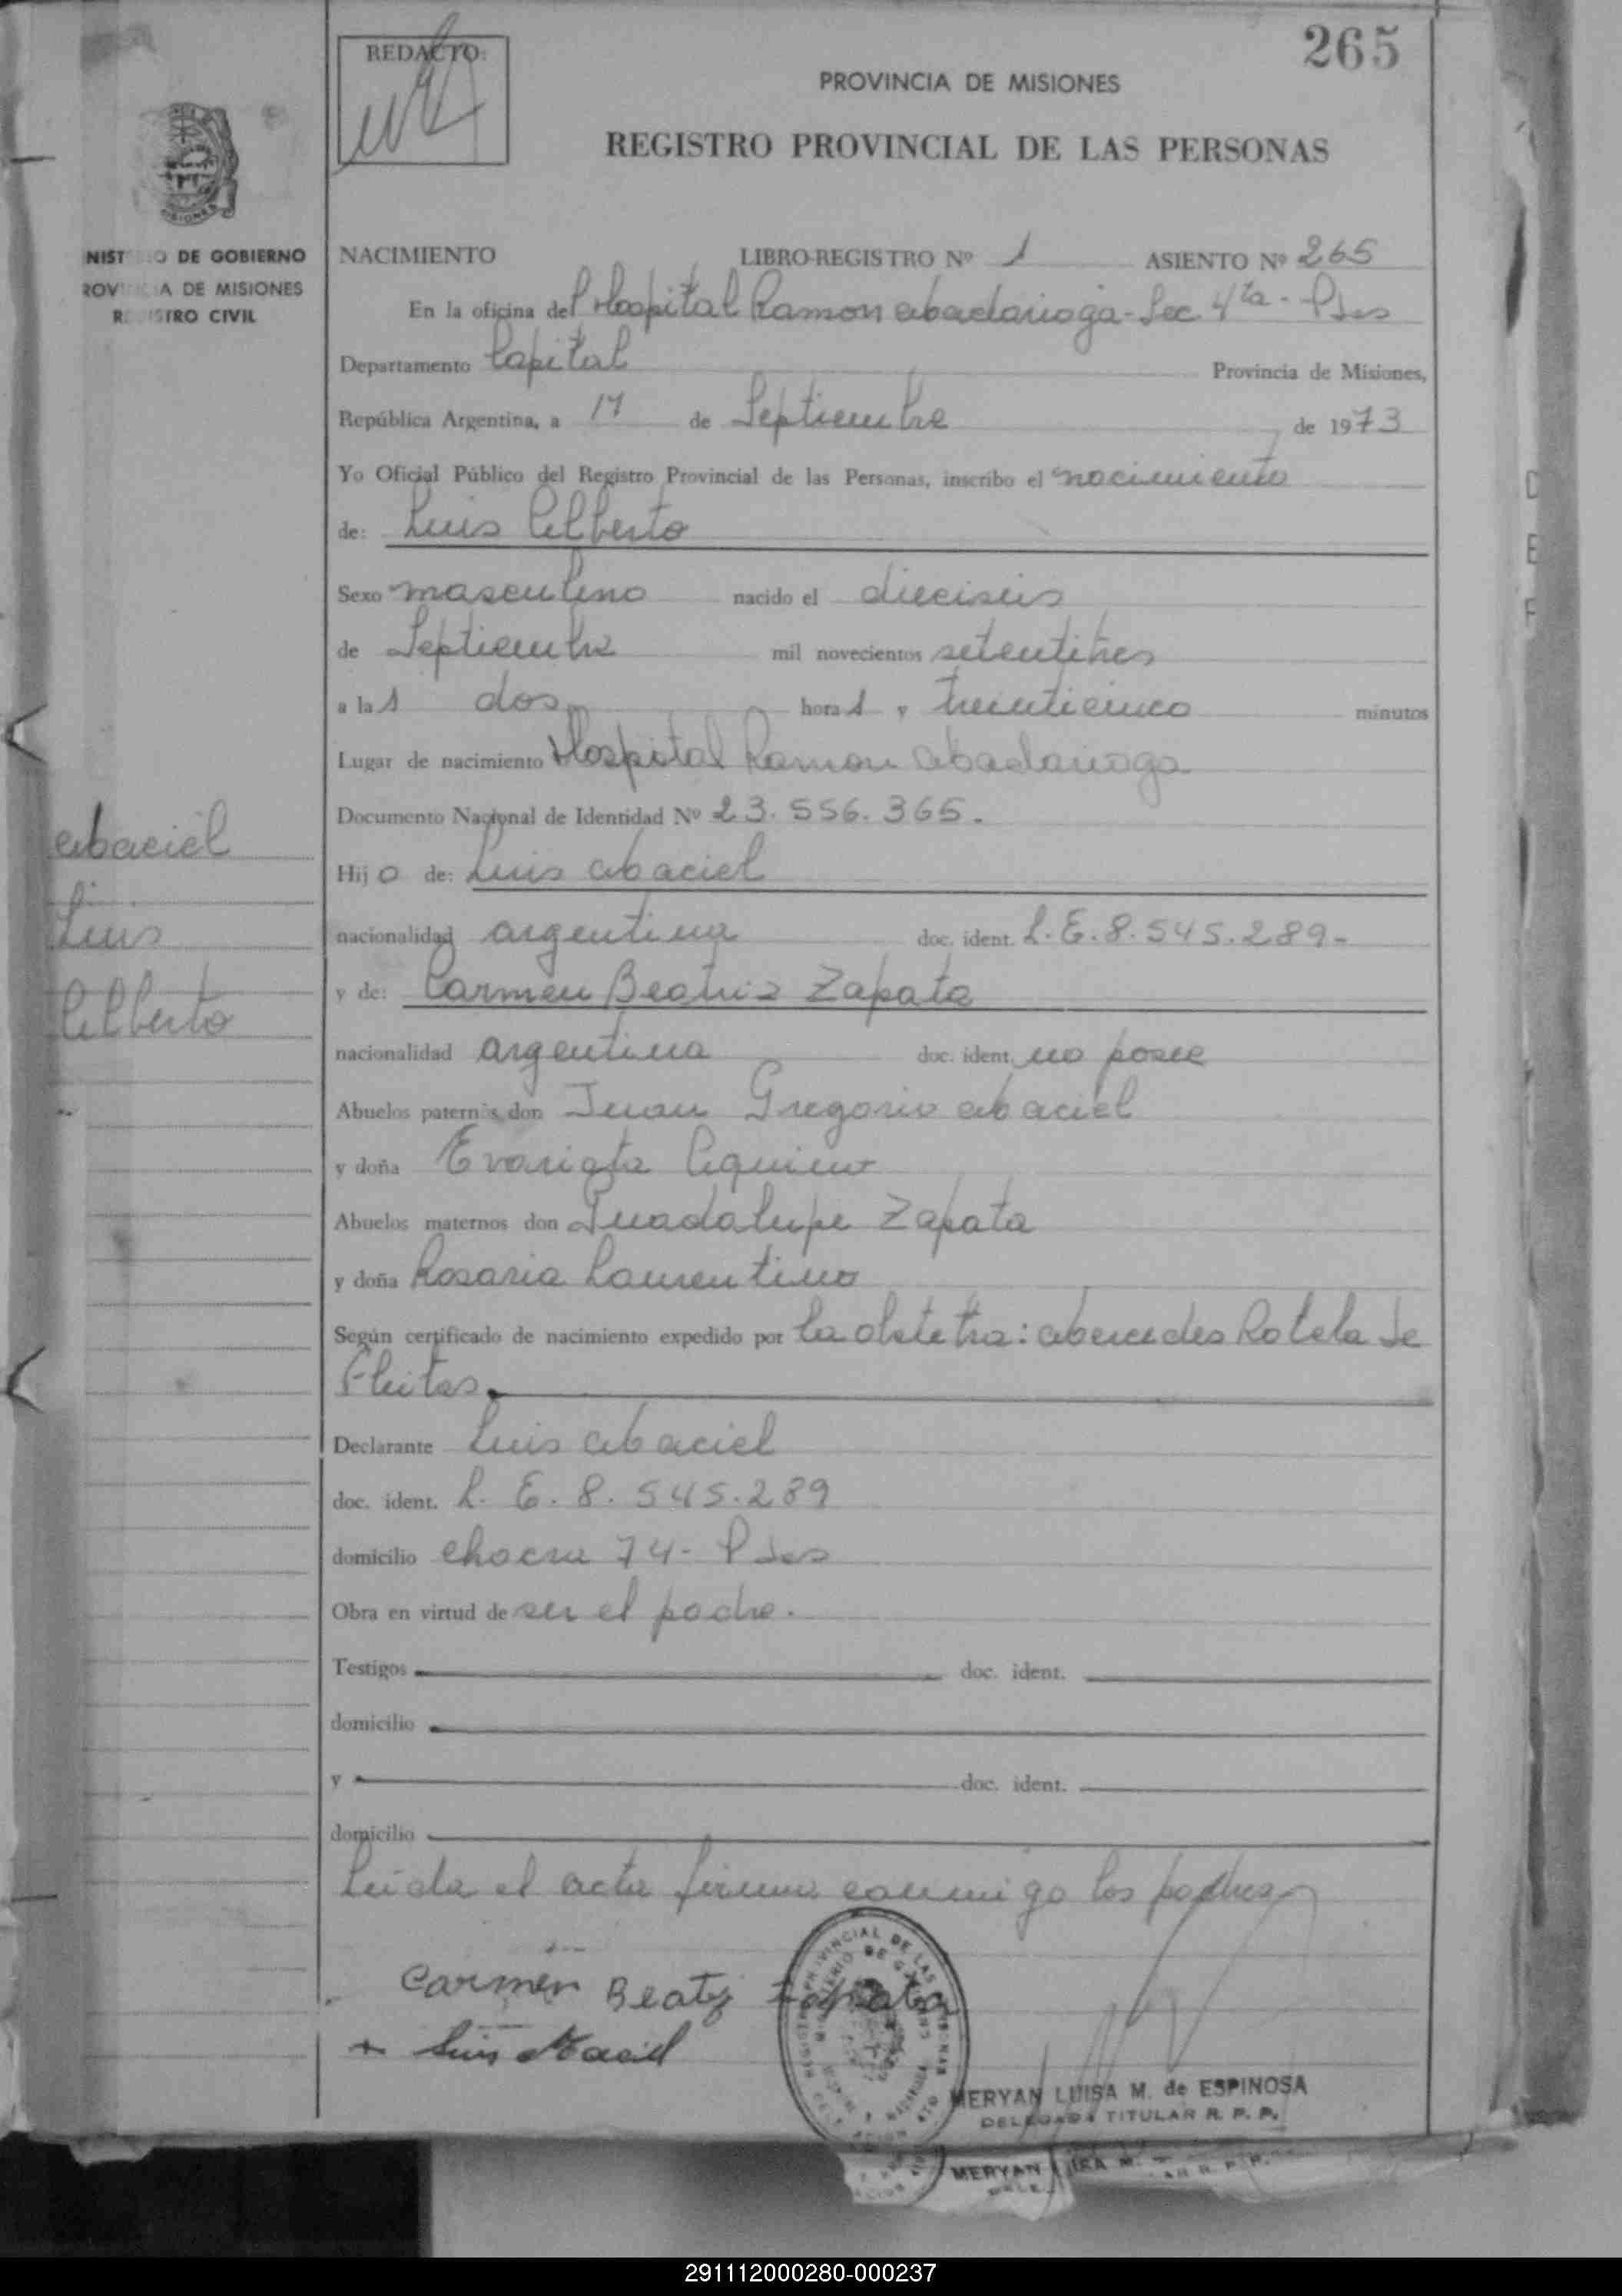 265
REDACTO:
PROVINCIA DE MISIONES
REGISTRO PROVINCIAL DE LAS PERSONAS
NIST O DE GOBIERNO
ROV A DE MISIONES
R ISTRO CIVIL
NACIMIENTO LIBRO-REGISTRO Nº 1 ASIENTO Nº 265
En la oficina del Hospital Ramon Madariaga - Sec. 4ta - Pdas
Departamento Capital Provincia de Misiones,
República Argentina, a 17 de Septiembre de 1973
Yo Oficial Público del Registro Provincial de las Personas, inscribo el nacimiento
de: Luis Alberto
Sexo masculino nacido el dieciseis
de Septiembre mil novecientos setentitres
a las dos horas y treinticinco minutos
Lugar de nacimiento Hospital Ramon Madariaga
Documento Nacional de Identidad Nº 23.556.365.
Maciel
Luis
Alberto
Hijo de: Luis Maciel
nacionalidad argentina doc. ident. L.E. 8.545.289-
y de: Carmen Beatriz Zapata
nacionalidad argentina doc. ident. no posee
Abuelos paternos don Juan Gregorio Maciel
y doña Evarista Aquino
Abuelos maternos don Guadalupe Zapata
y doña Rosaria Laurentino
Según certificado de nacimiento expedido por la obstetra: Mercedes Rotela de
Fleitas.
Declarante Luis Maciel
doc. ident. L. E. 8. 545.289
domicilio chacra 74- Pdas
Obra en virtud de ser el padre.
Testigos doc. ident.
domicilio
y doc. ident.
domicilio
Leida el acta firman conmigo los padres
Carmen Beatriz Zapata
Luis Maciel
MERYAN LUISA M. de ESPINOSA
DELEGADA TITULAR R. P. P.
MERYAN
291112000280-000237